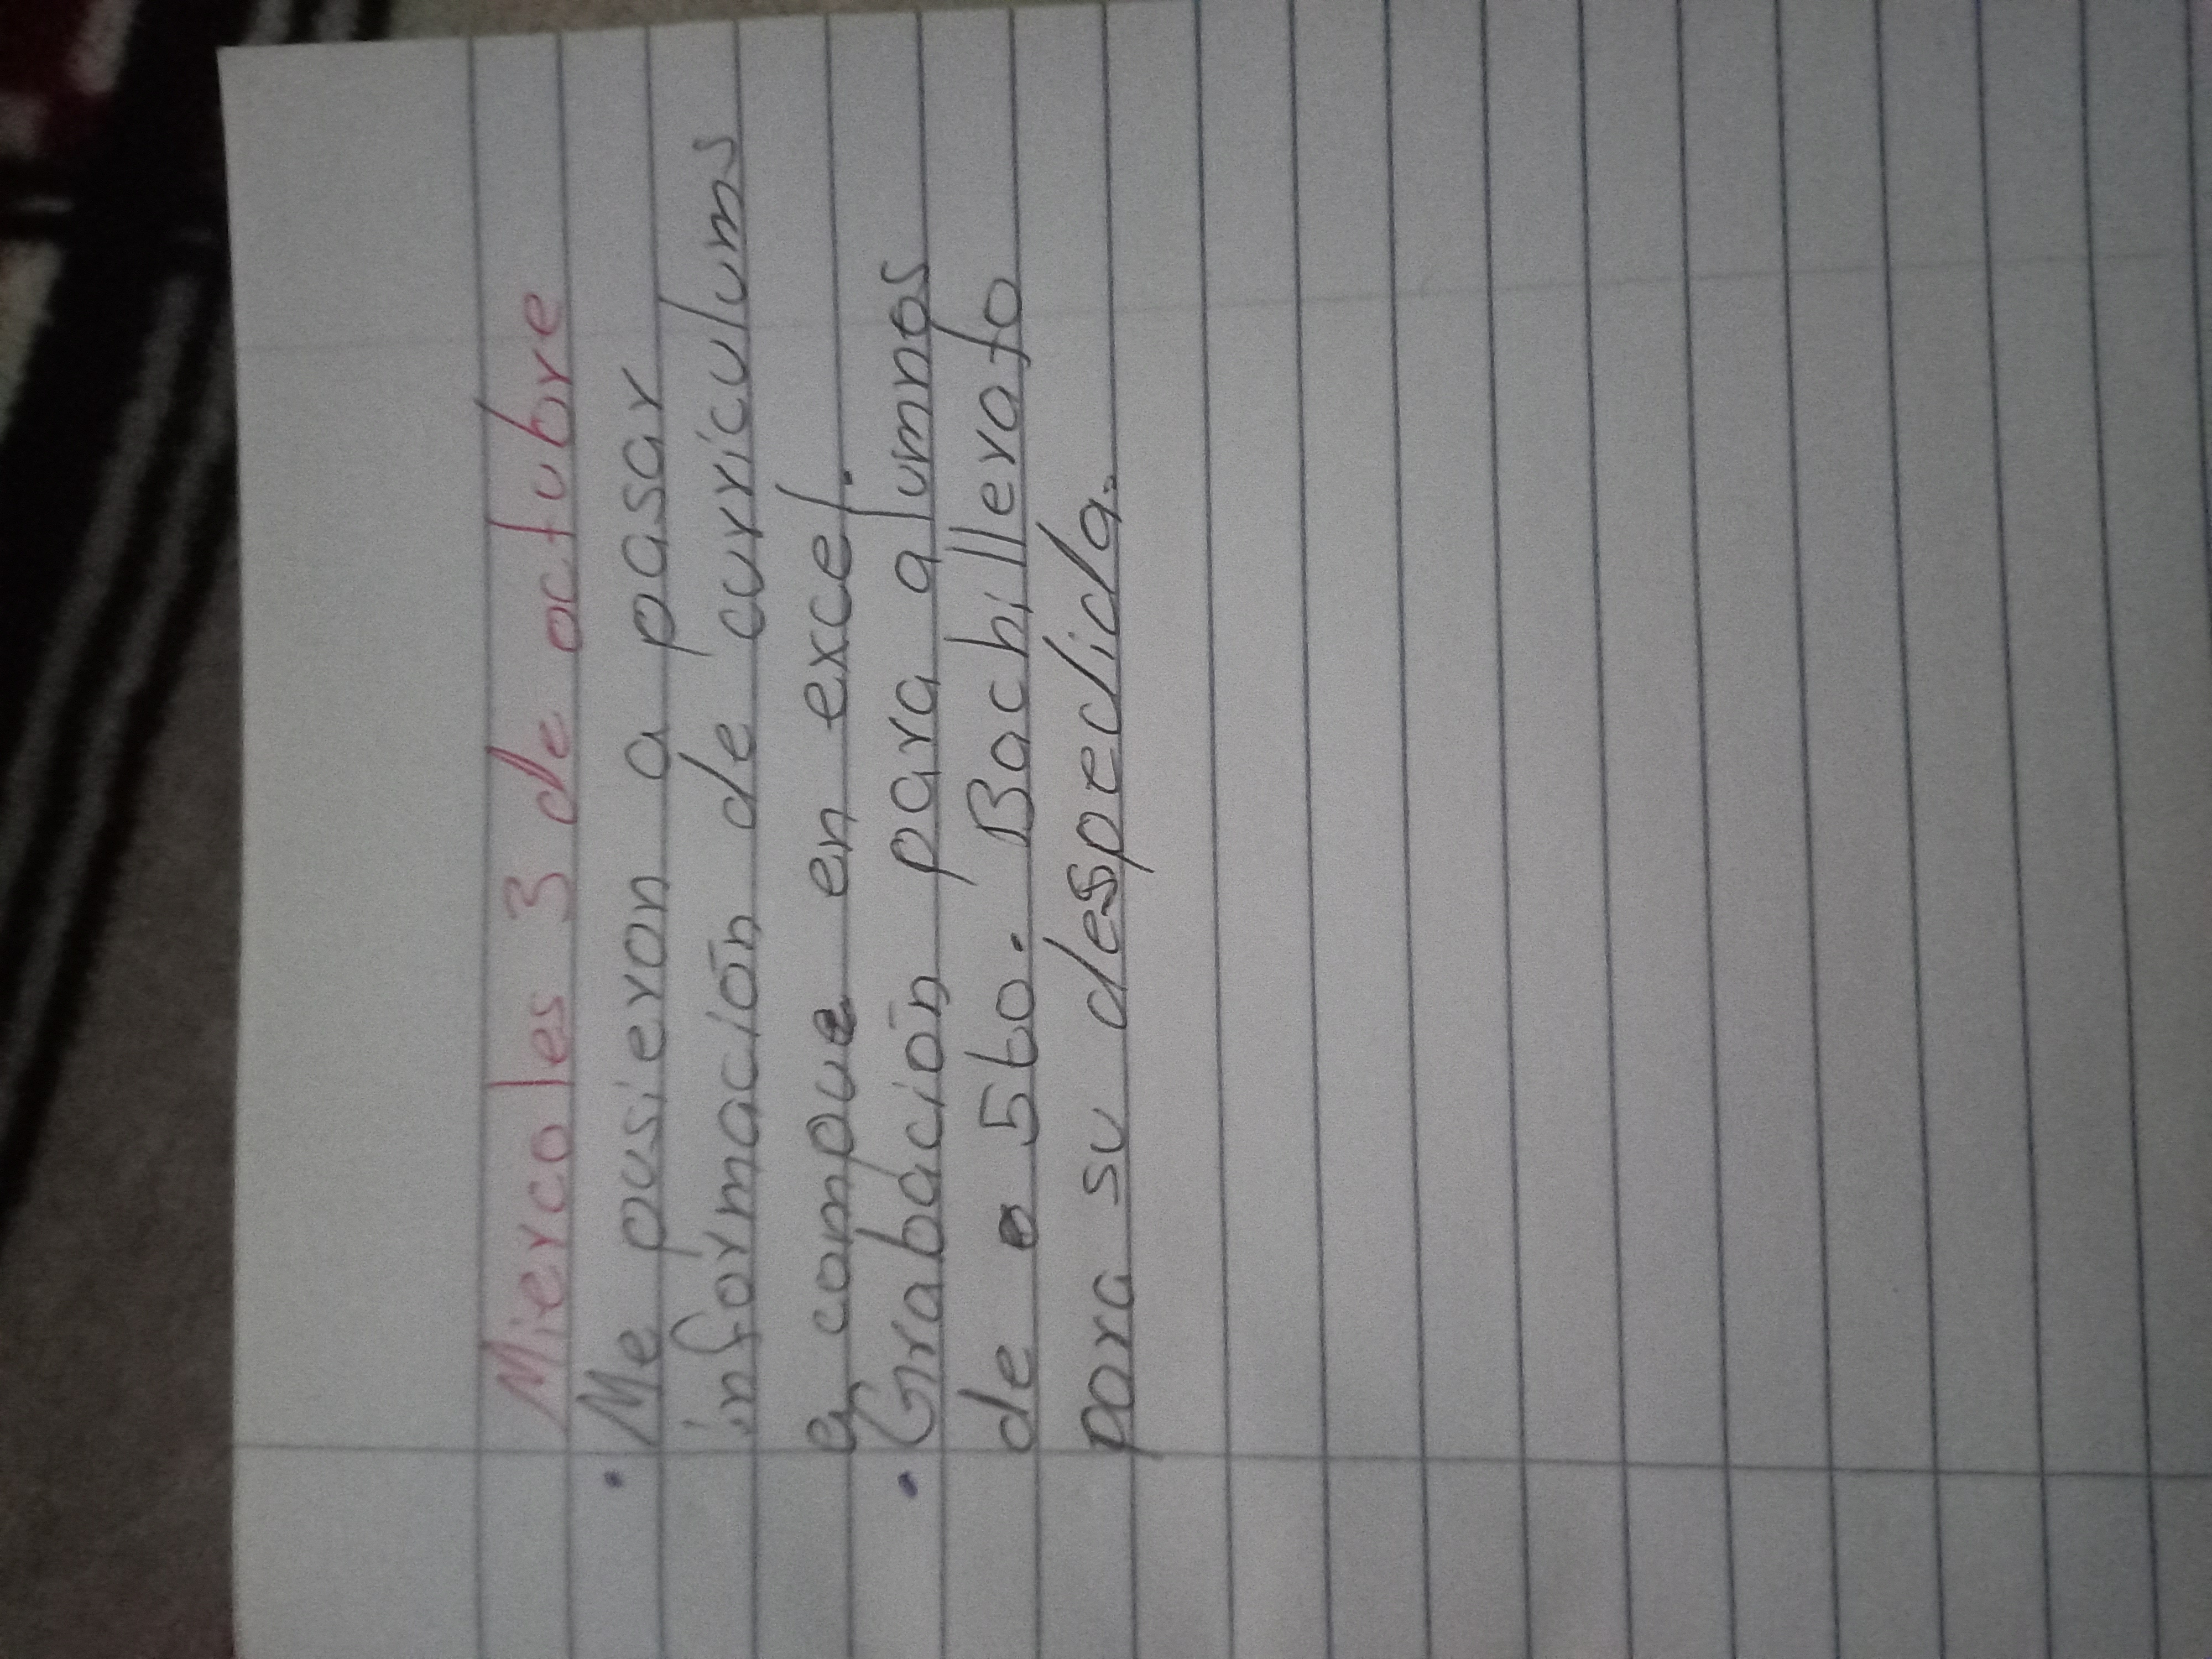 Miercoles 3 de octubre
• Me pusieron a pasar
información de curriculums
a compue en excel.
• Grabación para alumnos
de 5to. Bachillerato
para su despedida.